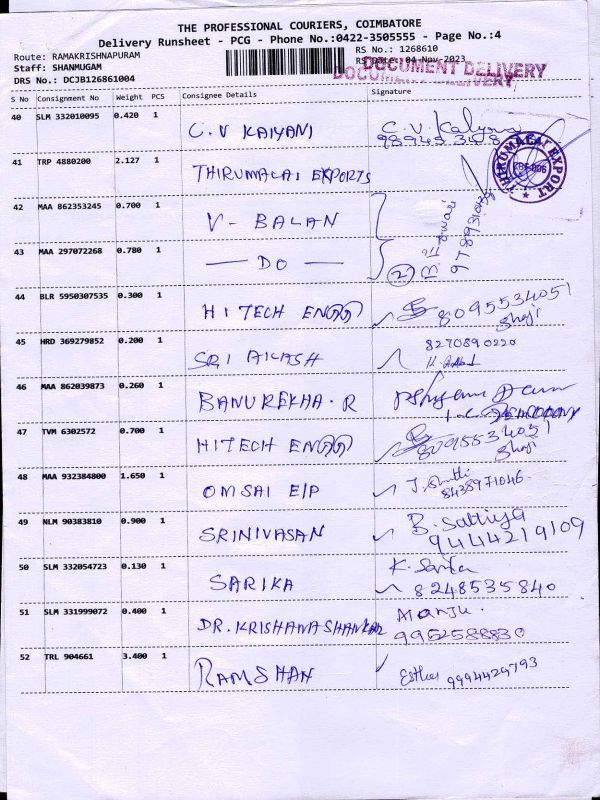 THE PROFESSIONAL COURIERS, COIMBATORE
Delivery Runsheet - PCG - Phone No.:0422-3505555 - Page No.:4
Route: RAMAKRISHNAPURAM RS No.: 1268610
Staff: SHANMUGAM RS Date: 04-Nov-2023
DOCUMENT DELIVERY
DOCUMENT DELIVERY
DRS No.: DCJB126861004
S No Consignment No Weight PCS Consignee Details Signature
40 SLM 332010095 0.420 1 C.V KALYANI C.V. Kalyani
41 TRP 4880200 2.127 1 THIRUMALAI EXPORTS
THIRUMALAI EXPORT
CBE-006
42 MAA 862353245 0.700 1 V- BALAN
43 MAA 297072268 0.780 1 — DO — 2
44 BLR 5950307535 0.300 1 HITECH ENGG 8095534051
Shaji
45 HRD 369279852 0.200 1 SRI AKASH 8270890220
46 MAA 862039873 0.260 1 BANUREKHA.R
47 TVM 6302572 0.700 1 HITECH ENGG 8095534051
Shaji
48 MAA 932384800 1.650 1 OMSAI E/P J. Shutti
8438971046
49 NLM 90383810 0.900 1 SRINIVASAN B. Sattiya
9444219109
50 SLM 332054723 0.130 1 SARIKA K. Sarika
8248535840
51 SLM 331999072 0.400 1 DR. KRISHANASHANKAR Manju.
9952588830
52 TRL 904661 3.400 1 RAMSHAN Esther 9994429793